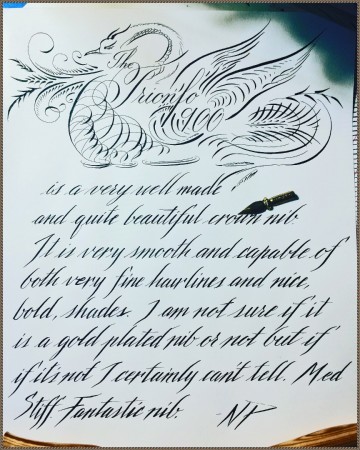 The
Trionfo
N900
is a very well made
and quite beautiful crown nib
It is very smooth and capable of
both very fine hairlines and nice,
bold, shades. I am not sure if it
is a gold plated nib or not but if
if it's not I certainly can't tell. Med
Stiff Fantastic nib. -NP